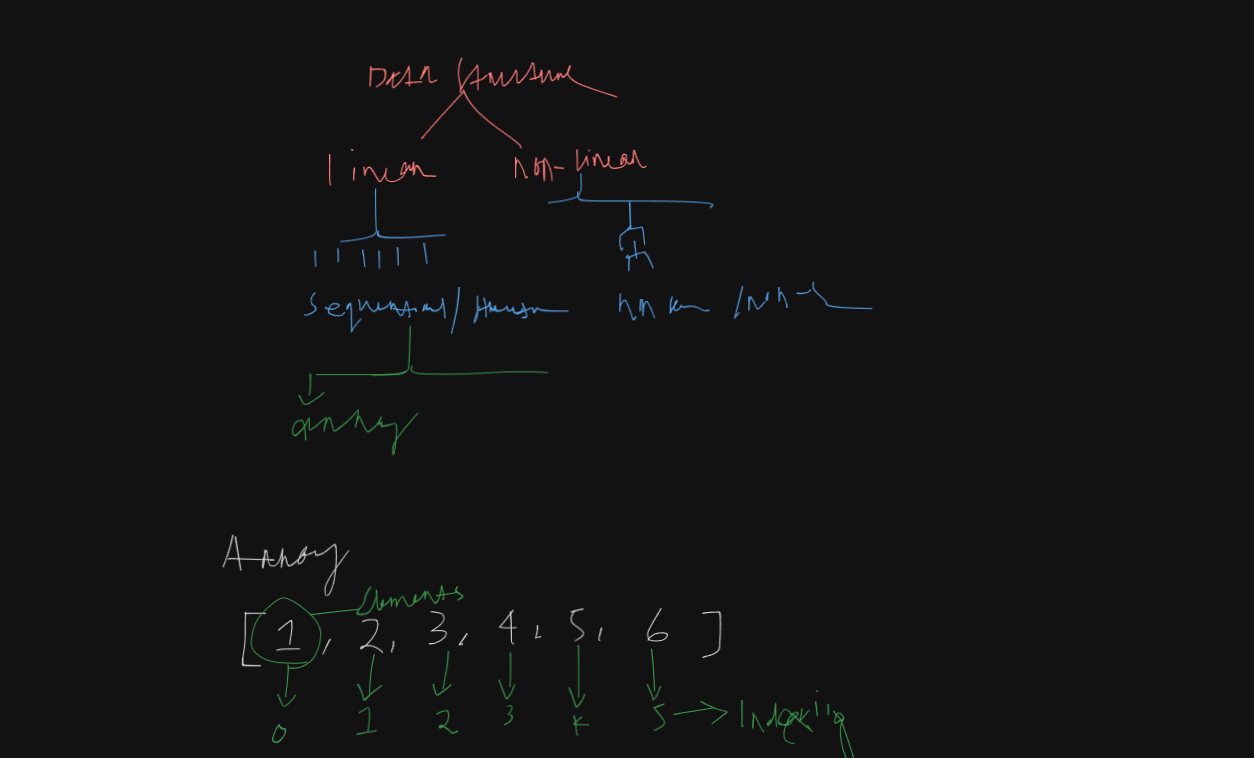 Data Structure
linear non-linear
Sequential/
array
Array
Elements
[1, 2, 3, 4, 5, 6]
0 1 2 3 4 5 → Indexing